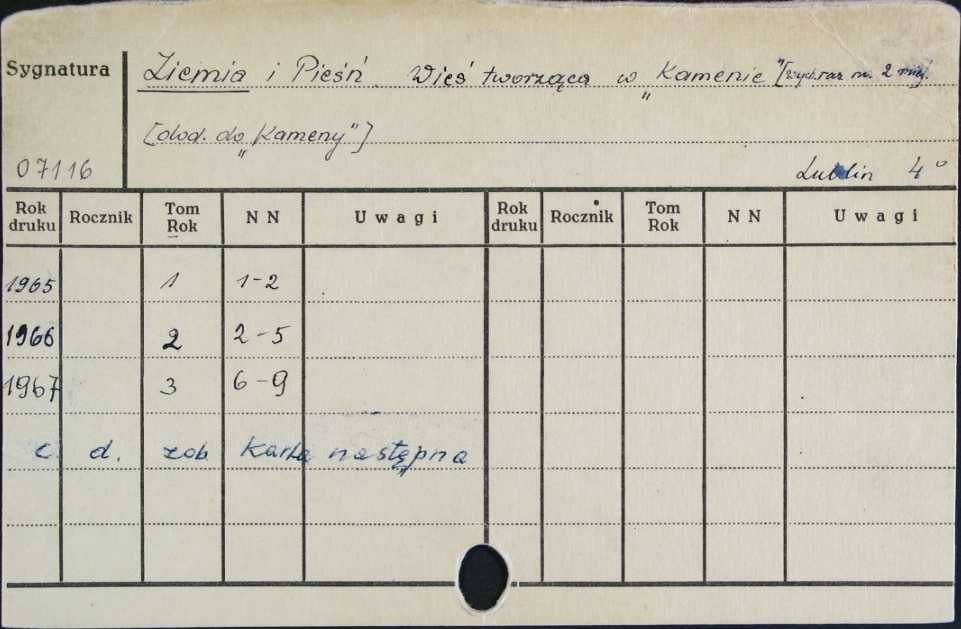 Sygnatura
Ziemia i Pieśń. Wieś tworząca w „Kamenie” [wych. raz na 2 mies.
[dod. do „Kameny”]
07116
Lublin 4°
Rok druku Rocznik Tom Rok NN Uwagi Rok druku Rocznik Tom Rok NN Uwagi
1965 1 1-2
1966 2 2-5
1967 3 6-9
c. d. zob. karta następna